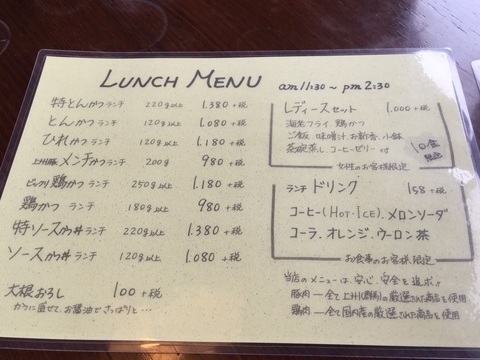 LUNCH MENU am 11:30 ~ pm 2:30
特とんかつランチ 220g以上 1.380+税
とんかつランチ 120g以上 1.080+税
ひれかつランチ 120g以上 1.180+税
上州豚メンチかつランチ 200g 980+税
ビックリ鶏かつランチ 250g以上 1.180+税
鶏かつランチ 180g以上 980+税
特ソースかつ丼ランチ 220g以上 1.380+税
ソースかつ丼ランチ 120g以上 1.080+税
大根おろし 100+税
かつに乗せて、お醤油でさっぱりと…
レディースセット 1.000+税
海老フライ、鶏かつ
ご飯、味噌汁、お新香、小鉢
茶碗蒸し、コーヒーゼリー付
10食限定
女性のお客様限定
ランチドリンク 158+税
コーヒー(HOT・ICE)、メロンソーダ
コーラ、オレンジ、ウーロン茶
お食事のお客様限定
当店のメニューは、安心、安全を追求!!
豚肉―全て上州(群馬)の厳選された商品を使用
鶏肉―全て国内産の厳選された商品を使用